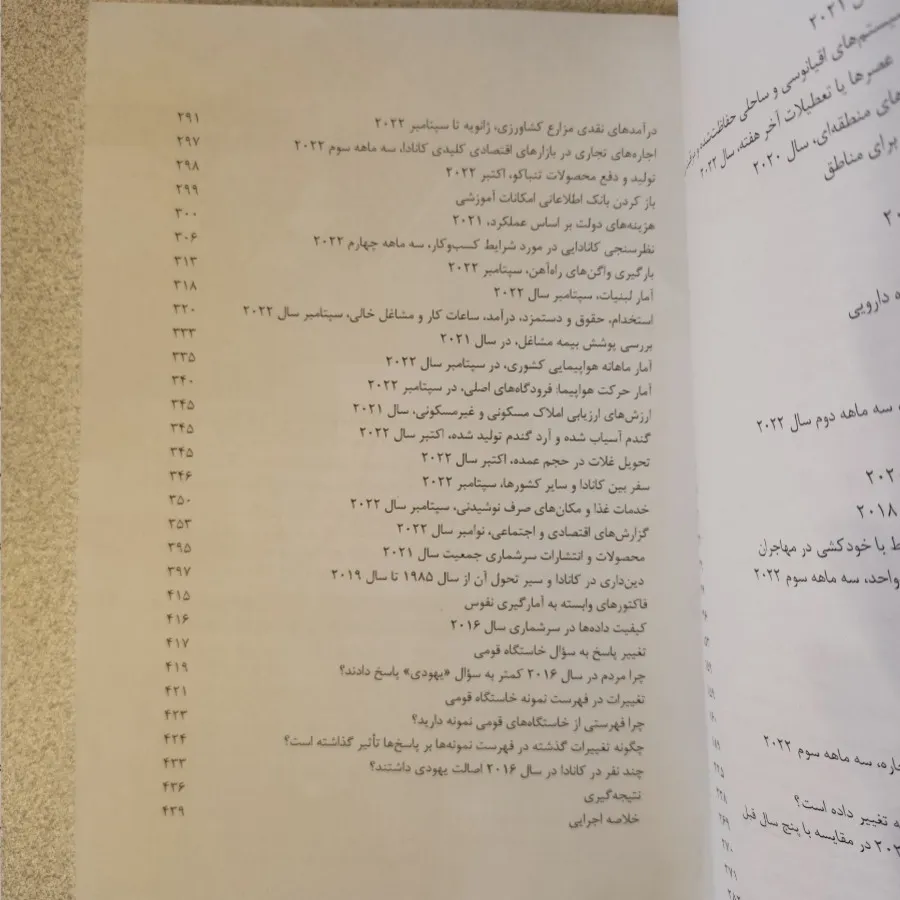 ۲۰۲۱
سیستم‌های اقیانوسی و ساحلی حفاظت‌شده
عصرها یا تعطیلات آخر هفته، سال ۲۰۲۲
های منطقه‌ای، سال ۲۰۲۰
برای مناطق
ه دارویی
، سه ماهه دوم سال ۲۰۲۲
۲۰۱۸
ط با خودکشی در مهاجران
واحد، سه ماهه سوم ۲۰۲۲
جاره، سه ماهه سوم ۲۰۲۲
ه تغییر داده است؟
در مقایسه با پنج سال قبل
۲۶۹
۲۷۰
۲۷۱
درآمدهای نقدی مزارع کشاورزی، ژانویه تا سپتامبر ۲۰۲۲ ۲۹۱
اجاره‌های تجاری در بازارهای اقتصادی کلیدی کانادا، سه ماهه سوم ۲۰۲۲ ۲۹۷
تولید و دفع محصولات تنباکو، اکتبر ۲۰۲۲ ۲۹۸
باز کردن بانک اطلاعاتی امکانات آموزشی ۲۹۹
هزینه‌های دولت بر اساس عملکرد، ۲۰۲۱ ۳۰۰
نظرسنجی کانادایی در مورد شرایط کسب‌وکار، سه ماهه چهارم ۲۰۲۲ ۳۰۶
بارگیری واگن‌های راه‌آهن، سپتامبر ۲۰۲۲ ۳۱۳
آمار لبنیات، سپتامبر سال ۲۰۲۲ ۳۱۸
استخدام، حقوق و دستمزد، درآمد، ساعات کار و مشاغل خالی، سپتامبر سال ۲۰۲۲ ۳۲۰
بررسی پوشش بیمه مشاغل، در سال ۲۰۲۱ ۳۳۳
آمار ماهانه هواپیمایی کشوری، در سپتامبر سال ۲۰۲۲ ۳۳۵
آمار حرکت هواپیما: فرودگاه‌های اصلی، در سپتامبر ۲۰۲۲ ۳۴۰
ارزش‌های ارزیابی املاک مسکونی و غیرمسکونی، سال ۲۰۲۱ ۳۴۵
گندم آسیاب شده و آرد گندم تولید شده، اکتبر سال ۲۰۲۲ ۳۴۵
تحویل غلات در حجم عمده، اکتبر سال ۲۰۲۲ ۳۴۵
سفر بین کانادا و سایر کشورها، سپتامبر ۲۰۲۲ ۳۴۶
خدمات غذا و مکان‌های صرف نوشیدنی، سپتامبر سال ۲۰۲۲ ۳۵۰
گزارش‌های اقتصادی و اجتماعی، نوامبر سال ۲۰۲۲ ۳۵۳
محصولات و انتشارات سرشماری جمعیت سال ۲۰۲۱ ۳۹۵
دین‌داری در کانادا و سیر تحول آن از سال ۱۹۸۵ تا سال ۲۰۱۹ ۳۹۷
فاکتورهای وابسته به آمارگیری نفوس ۴۱۵
کیفیت داده‌ها در سرشماری سال ۲۰۱۶ ۴۱۶
تغییر پاسخ به سؤال خاستگاه قومی ۴۱۷
چرا مردم در سال ۲۰۱۶ کمتر به سؤال «یهودی» پاسخ دادند؟ ۴۱۹
تغییرات در فهرست نمونه خاستگاه قومی ۴۲۱
چرا فهرستی از خاستگاه‌های قومی نمونه دارید؟ ۴۲۳
چگونه تغییرات گذشته در فهرست نمونه‌ها بر پاسخ‌ها تأثیر گذاشته است؟ ۴۲۴
چند نفر در کانادا در سال ۲۰۱۶ اصالت یهودی داشتند؟ ۴۳۳
نتیجه‌گیری ۴۳۶
خلاصه اجرایی ۴۳۹